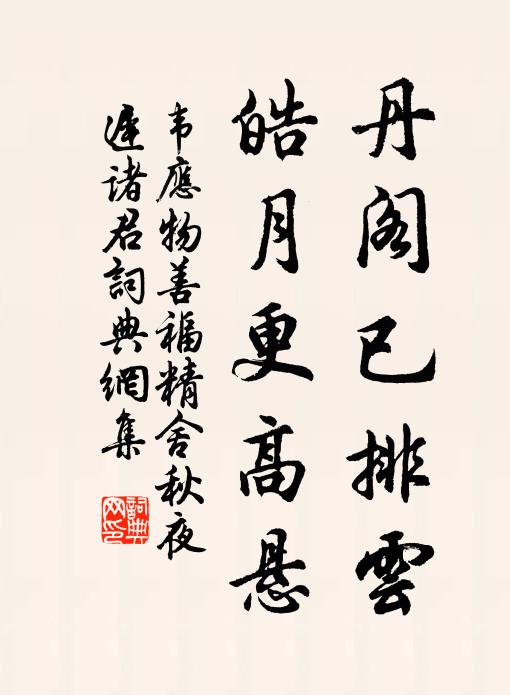 丹阁已排雲
皓月更高悬
韦應物善福精舍秋夜
遲诸君詞典網集
詞典
网印